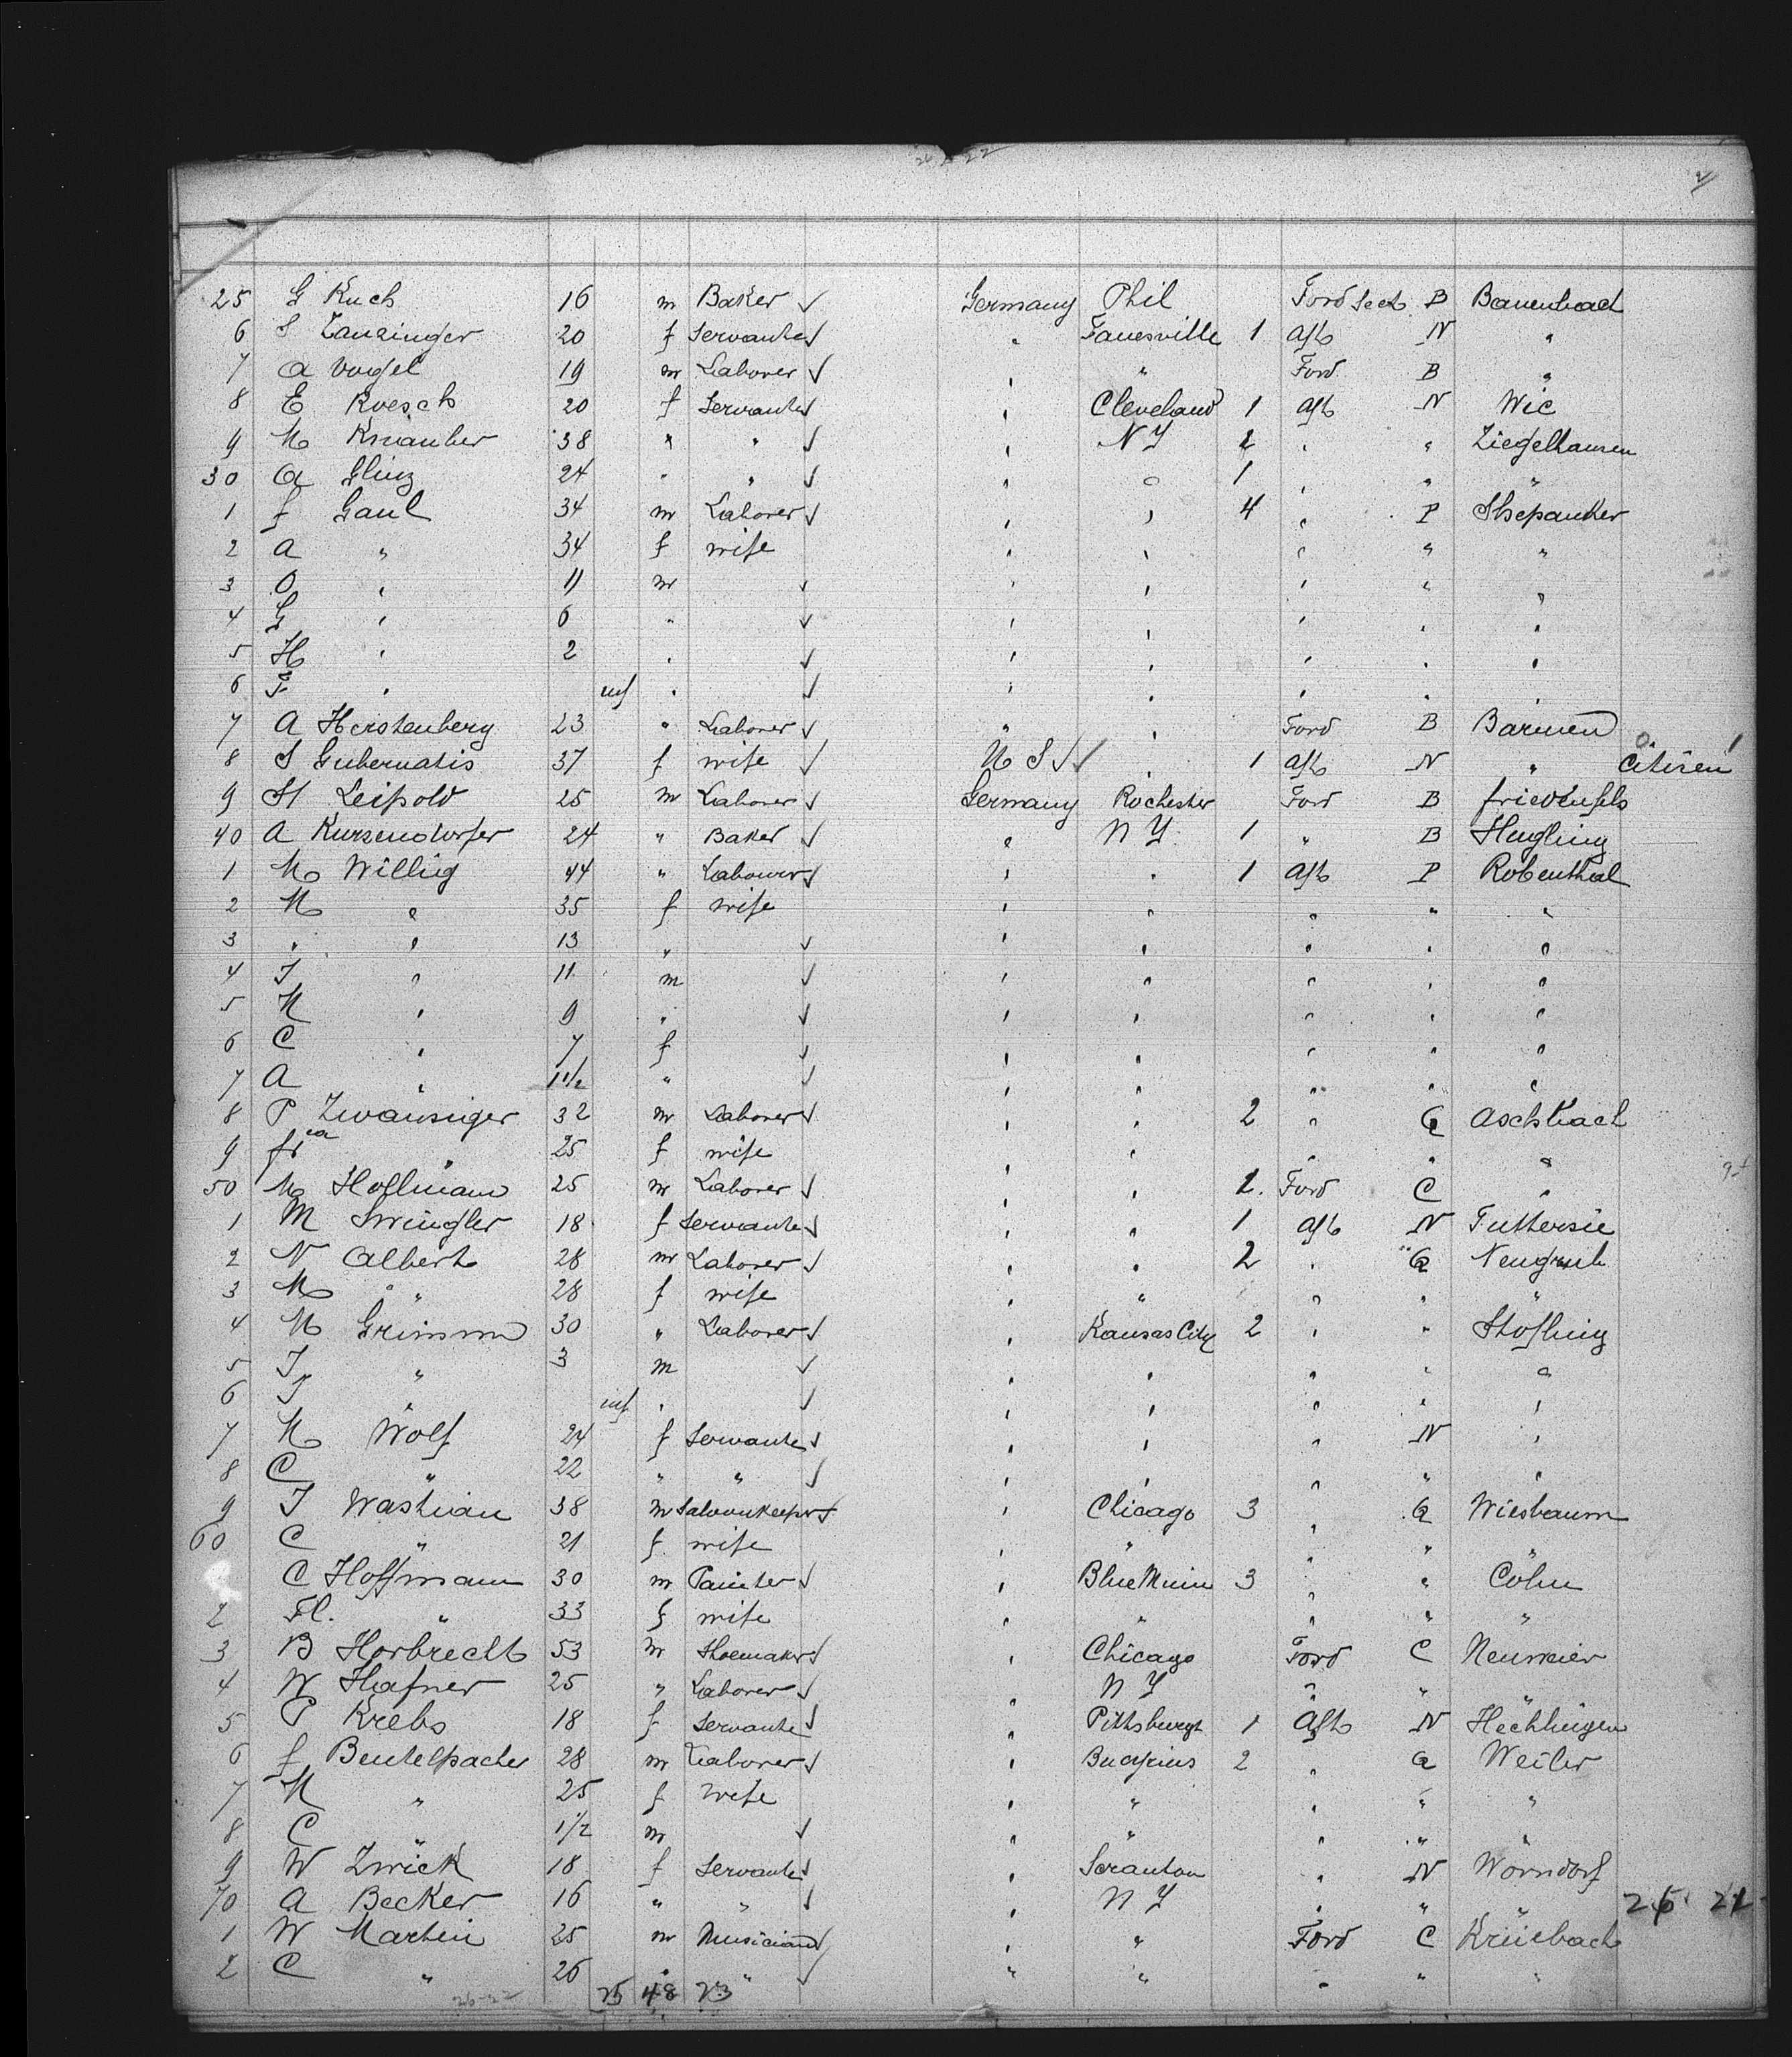 25 G Ruch 16 m Baker ✓ Germany Phil Ford Sect. B Bauenbach
6 S Zanzinger 20 f Servante ✓ " Janesville 1 Aft N "
7 A Vogel 19 m Laborer ✓ " " Ford B "
8 E Roesch 20 f Servante ✓ " Cleveland 1 Aft N Wie
9 M 38 " " ✓ " N Y 2 " " Ziegelhausen
30 A Glinz 24 " " ✓ " " 1 " " "
1 f Gaul 34 m Laborer ✓ " " 4 " P
2 A " 34 f wife " " " " "
3 O " 11 m ✓ " " " " "
4 G " 6 " ✓ " " " " "
5 H " 2 " ✓ " " " " "
6 F " inf " ✓ " " " " "
7 A Herstenberg 23 " Laborer ✓ " " Ford B Barmen
8 S Gubernatis 37 f wife ✓ U S ✓✓ " 1 Aft N " Citizen
9 H Leipold 25 m Laborer ✓ Germany Rochester Ford B friedenfels
40 A Kursendorfer 24 " Baker ✓ " N Y. 1 " B Hugling
1 M Willig 44 " Labourer ✓ " " 1 Aft P Robenthal
2 M " 35 f wife " " " " "
3 " " 13 " ✓ " " " " "
4 J " 11 m ✓ " " " " "
5 M " 9 " ✓ " " " " "
6 C " 7 f ✓ " " " " "
7 A " 1 1/2 " ✓ " " " " "
8 P Zwansiger 32 m Laborer ✓ " " 2 " Q Aschbach
9 " 25 f wife " " " " "
50 M Hollmann 25 m Laborer ✓ " " 1. Ford C "
1 M Swingler 18 f Servante ✓ " " 1 Aft N Tuttersie
2 N Albert 28 m Laborer ✓ " " 2 " Q Neugrub
3 M " 28 f wife " " " " "
4 M Grimm 30 " Laborer ✓ " Kansas City 2 " " Stofling
5 J " 3 m ✓ " " " " "
6 J " inf " ✓ " " " " "
7 M Wolf 24 f Servante ✓ " " " N "
8 C " 22 " " ✓ " " " " "
9 J Wastian 38 m Saloonkeeper ✓ " Chicago 3 " Q Wiesbaum
60 C " 21 f wife " " " " "
C Hoffmann 30 m Painter ✓ " 3 " " Cöln
2 Fl. " 33 f wife " " " " "
3 B Horbrecht 53 m Shoemaker ✓ " Chicago Ford C Neumeier
4 W Hafner 25 " Laborer ✓ " N Y " " "
5 P Krebs 18 f Servante ✓ " Pittsburgh 1 Aft N Hechlingen
6 f Beutelspacher 28 m Laborer ✓ " 2 " Q Weiler
7 M " 25 f wife " " " " "
8 C " 1/2 m ✓ " " " " "
9 W Zwick 18 f Servante ✓ " Scranton " N Worndorf
70 A Becker 16 " " ✓ " N Y " " "
1 W Martin 25 m Musician ✓ " " Ford C Kruebach
2 C " 26 " " ✓ " " " " "
25 48 23